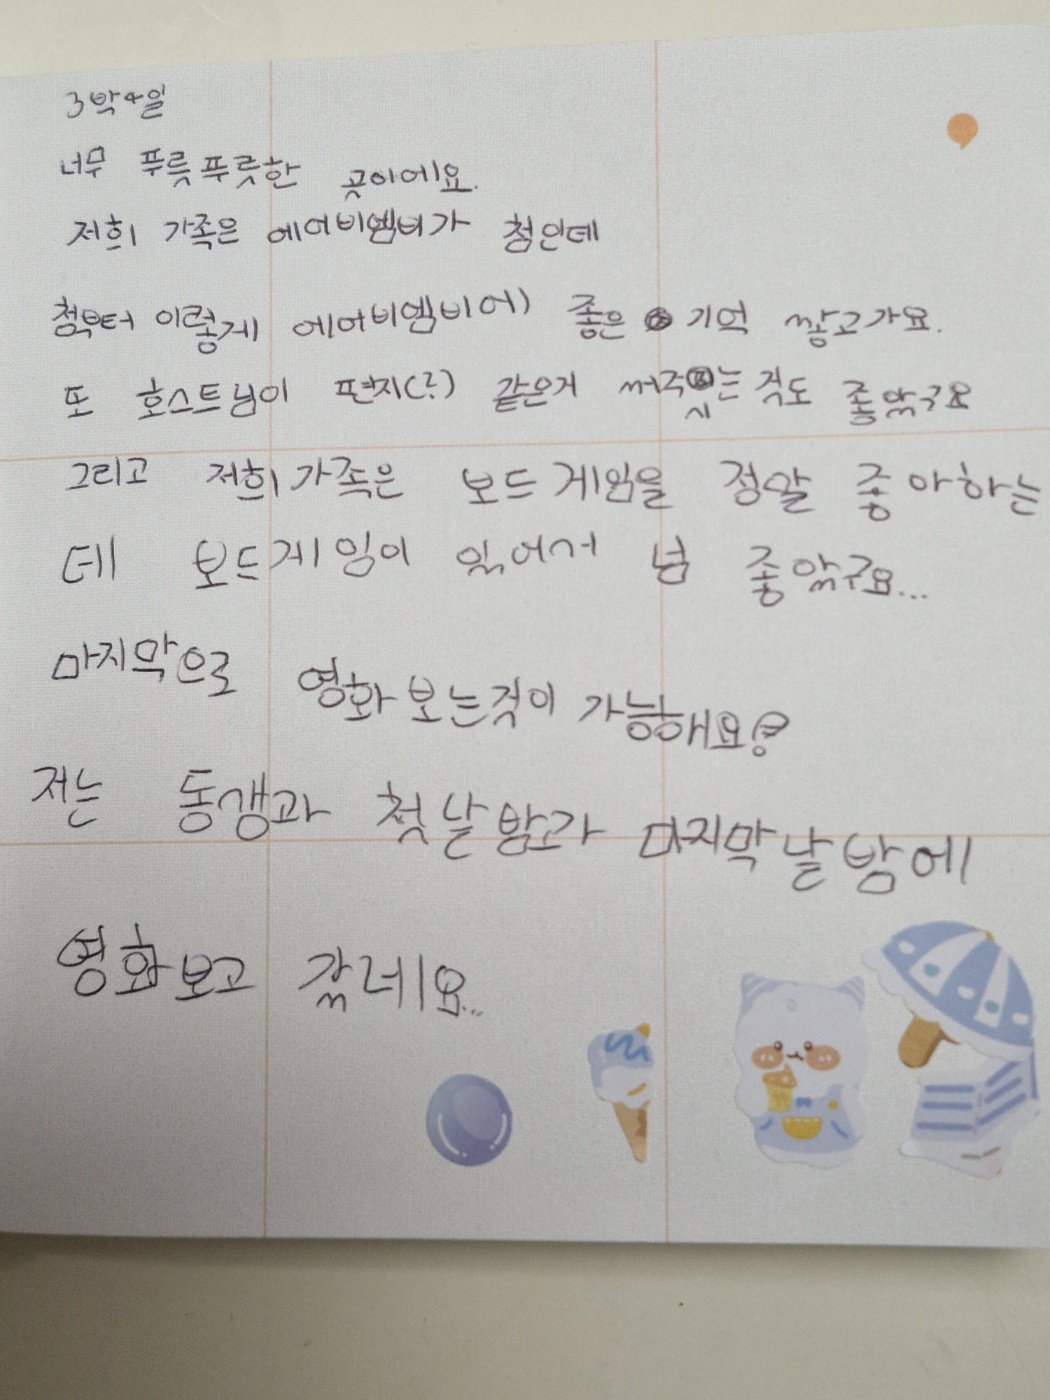 3박4일
너무 푸릇푸릇한 곳이에요.
저희 가족은 에어비엠비가 첨인데
첨부터 이렇게 에어비엠비에) 좋은 기억 쌓고가요.
또 호스트님이 편지(?) 같은거 써주시는 것도 좋았구요
그리고 저희 가족은 보드게임을 정말 좋아하는
데 보드게임이 있어서 넘 좋았구요...
마지막으로 영화 보는것이 가능해요!?
저는 동갱과 첫날밤과 마지막날 밤에
영화보고 갔네요...